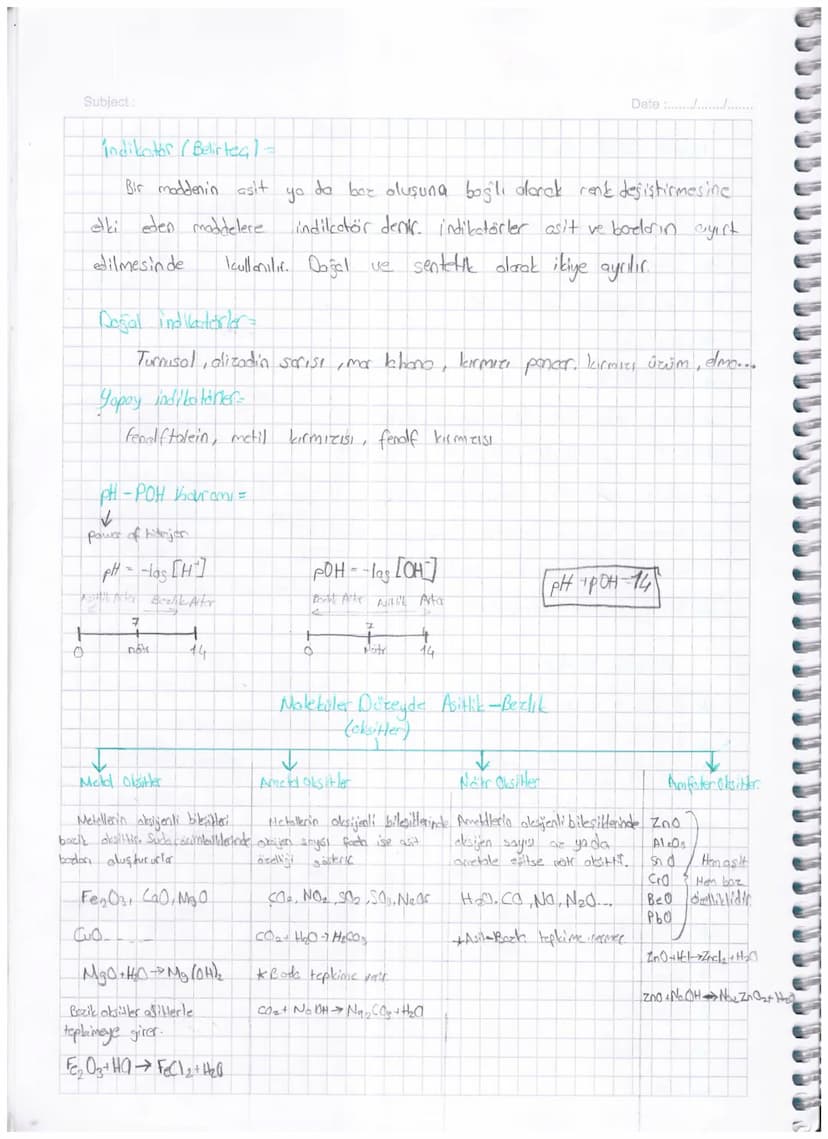 Subject :
Date :....../....../......
İndikatör (Belirteç) =
Bir maddenin asit ya da baz oluşuna bağlı olarak renk değiştirmesine
etki eden maddelere indikatör denir. indikatörler asit ve bazların ayırt
edilmesinde kullanılır. Doğal ve sentetik olarak ikiye ayrılır.
Doğal indikatörler=
Turnusol, alizadin sarısı, mor lahana, kırmızı pancar, kırmızı üzüm, elma...
Yapay indikatörler=
Fenolftalein, metil kırmızısı, fenolf kırmızısı
pH - POH Kavramı =
power of hidrojen
pH = -log [H⁺]
pOH = -log [OH⁻]
pH + pOH = 14
Asitlik Artar Bazlık Artar
Bazlık Artar Asitlik Artar
7
7
0 nötr 14
0 Nötr 14
Moleküler Düzeyde Asitlik - Bazlık
(oksitler)
Metal Oksitler
Ametal Oksitler
Nötr Oksitler
Amfoter Oksitler
Metallerin oksijenli bileşikleri
bazik oksittir. Suda çözündüklerinde
bazları oluştururlar
Fe₂O₃, CaO, MgO
CuO......
MgO + H₂O → Mg(OH)₂
Bazik oksitler asitlerle
tepkimeye girer.
Fe₂O₃ + HCl → FeCl₂ + H₂O
Metallerin oksijenli bileşiklerinde
oksijen sayısı fazla ise asit
özelliği gösterir
CO₂, NO₂, SO₂, SO₃,
CO₂ + H₂O → H₂CO₃
* Bazla tepkime verir
CO₂ + NaOH → Na₂CO₃ + H₂O
Ametallerin oksijenli bileşiklerinde
oksijen sayısı az ya da
ametale eşitse nötr oksittir.
H₂O, CO, NO, N₂O...
* Asit-Bazla tepkime vermez
ZnO
Al₂O₃
SnO
CrO
BeO
PbO
Hem asit
Hem baz
özelliklidir
ZnO + HCl → ZnCl₂ + H₂O
ZnO + NaOH → Na₂ZnO₂ + H₂O